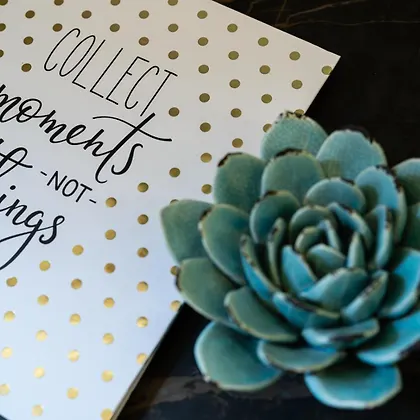 COLLECT
moments
-NOT-
things